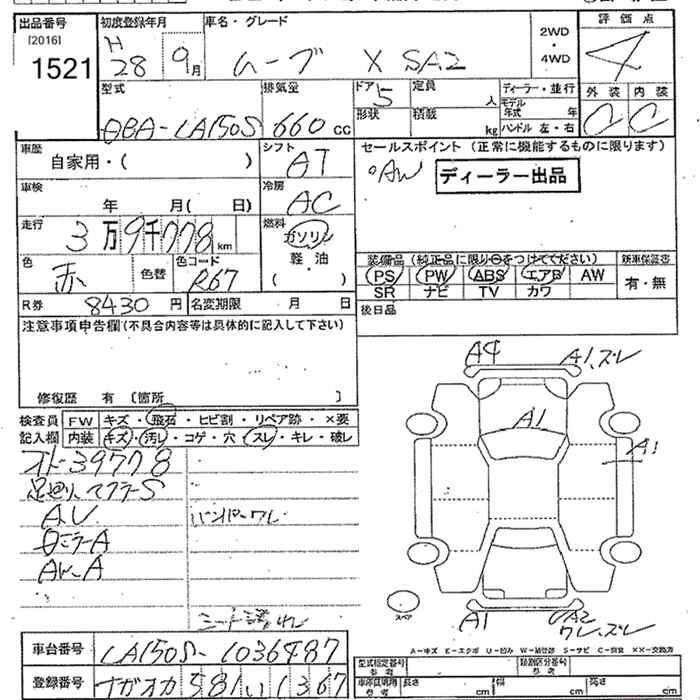 出品番号 初度登録年月 車名・グレード 評価点
[2016] H 28 9月 ムーブ X SA2 2WD・4WD 4
1521
型式 排気量 ドア 5 定員 人 ディーラー・並行 外装 内装
形状 積載 kg モデル年式 年 C C
DBA-LA150S 660cc ハンドル 左・右
車歴 自家用・( ) シフト AT セールスポイント (正常に機能するものに限ります)
°AW ディーラー出品
車検 年 月( 日) 冷房 AC
走行 3万9千778km 燃料 ガソリン・軽油 ( )
色 赤 色替 色コード R67
装備品 (純正品に限り○をつけてください) 新車保証書
PS PW ABS エアB AW 有・無
SR ナビ TV カワ
R券 8430円 名変期限 月 日 後日品
注意事項申告欄(不具合内容等は具体的に記入して下さい)
修復歴 有 〔箇所 〕
検査員記入欄 FW キズ・飛石・ヒビ割・リペア跡・×要
内装 キズ・汚レ・コゲ・穴・スレ・キレ・破レ
メーター39778
足廻り、マフラーS
AV バンパーワレ
AW-A
シート
A4 A1、ズレ
A1
A1
スペア
A1 UA2
ワレ、ズレ
A-キズ E-エクボ U-凹み W-補修跡 S-サビ C-腐食 XX-交換済
車台番号 LA150S-1036487
登録番号 ナガオカ 581 い 1367
型式指定番号 参考 類別区分番号 参考
車庫証明用 参考 長さ cm 幅 cm 高さ cm